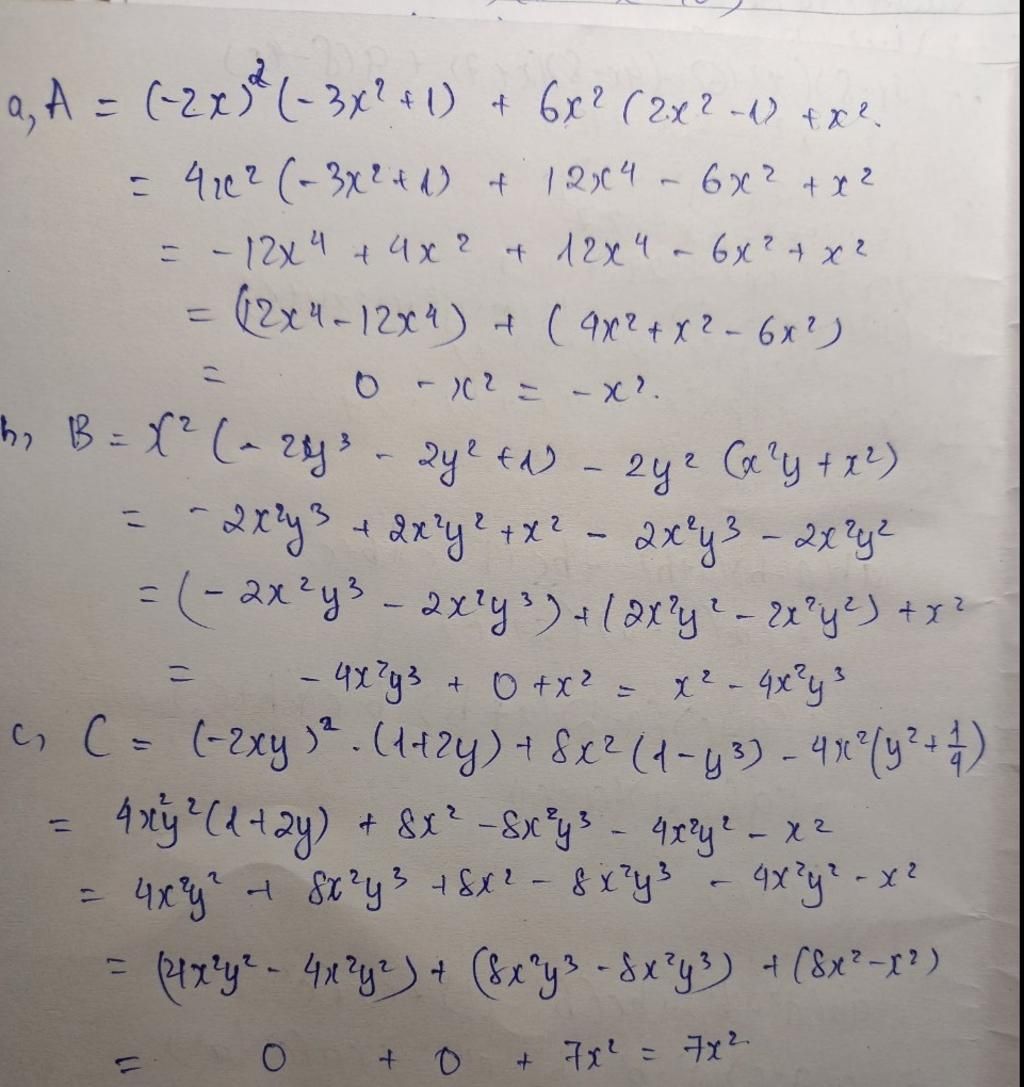 a, A = (-2x)²(-3x²+1) + 6x²(2x²-1) + x².
= 4x²(-3x²+1) + 12x⁴ - 6x² + x²
= -12x⁴ + 4x² + 12x⁴ - 6x² + x²
= (12x⁴ - 12x⁴) + (4x² + x² - 6x²)
= 0 - x² = -x².
b, B = x²(-2y³ - 2y² + 1) - 2y²(x²y + x²)
= -2x²y³ + 2x²y² + x² - 2x²y³ - 2x²y²
= (-2x²y³ - 2x²y³) + (2x²y² - 2x²y²) + x²
= -4x²y³ + 0 + x² = x² - 4x²y³
c, C = (-2xy)².(1+2y) + 8x²(1-y³) - 4x²(y² + 1/4)
= 4x²y²(1+2y) + 8x² - 8x²y³ - 4x²y² - x²
= 4x²y² + 8x²y³ + 8x² - 8x²y³ - 4x²y² - x²
= (4x²y² - 4x²y²) + (8x²y³ - 8x²y³) + (8x² - x²)
= 0 + 0 + 7x² = 7x²